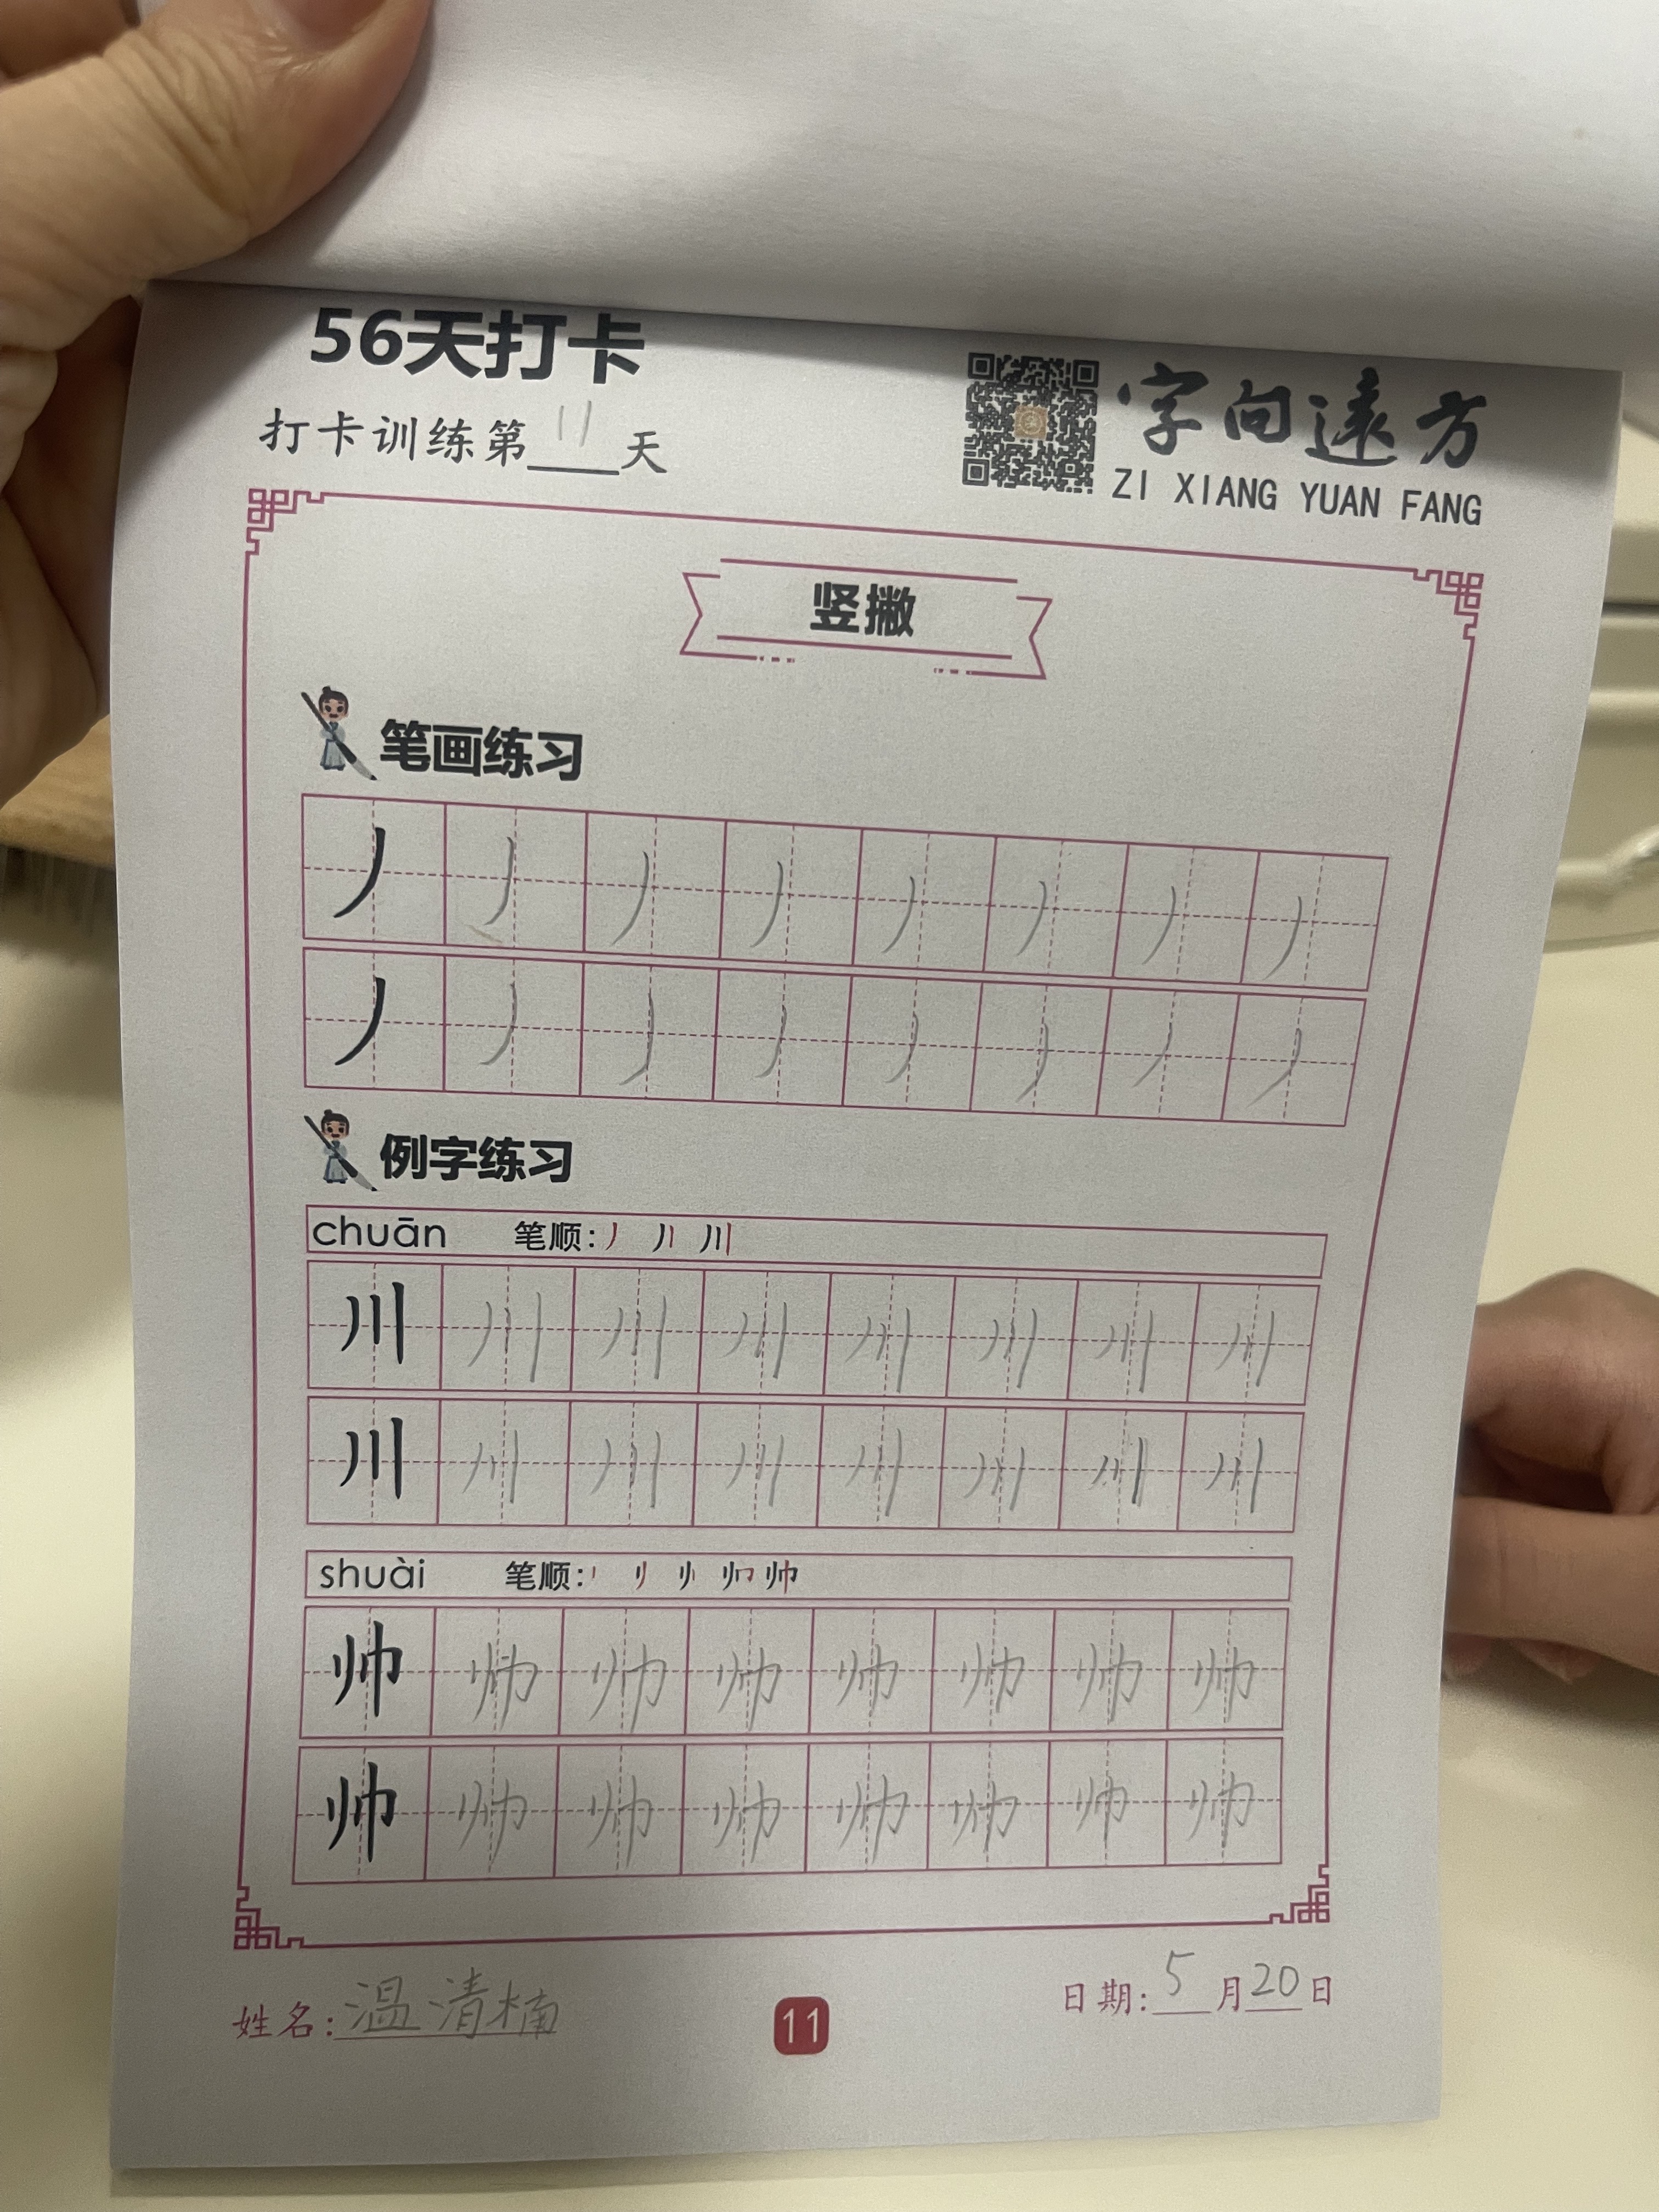 56天打卡
打卡训练第11天
字向遠方
ZI XIANG YUAN FANG
竖撇
笔画练习
丿 丿 丿 丿 丿 丿 丿 丿
丿 丿 丿 丿 丿 丿 丿 丿
例字练习
chuān 笔顺: 丿 丿丨 川
川 川 川 川 川 川 川 川
川 川 川 川 川 川 川 川
shuài 笔顺: 帅
帅 帅 帅 帅 帅 帅 帅 帅
帅 帅 帅 帅 帅 帅 帅 帅
姓名:温清楠
11
日期:5月20日